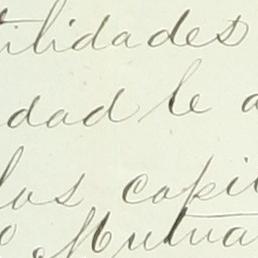 tilidades
dad le a
los capi
o Mutua